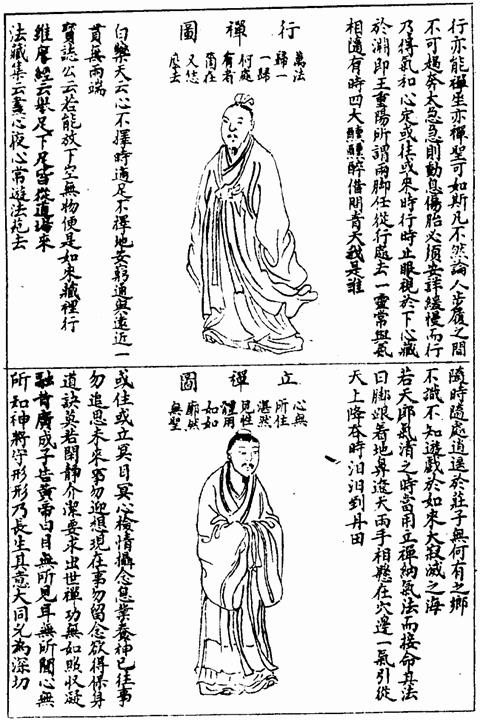 行亦能禪坐亦禪聖可如斯凡不然論人步履之間
不可趨奔太急急則動息傷胎必須安詳緩慢而行
乃得氣和心定或往或來時行時止眼視於下心藏
於淵即王重陽所謂兩脚任從行處去一靈常與氣
相隨有時四大醺醺醉借問青天我是誰
行禪圖
萬法
歸一
一歸
何處
有者
箇在
又恁
麼去
白樂天云心不擇時適足不擇地安窮通與遠近一
貫無兩端
寶誌公云若能放下空無物便是如來藏裡行
維摩經云舉足下足皆從道場來
法藏集云晝心夜心常遊法苑去
隨時隨處逍遥於莊子無何有之鄉
不識不知遊戲於如來大寂滅之海
若天郎氣清之時當用立禪納氣法而接命其法
曰脚跟着地鼻遼天兩手相懸在穴邊一氣引從
天上降吞時汩汩到丹田
立禪圖
心無
所住
湛然
見性
體用
如如
廓然
無聖
或住或立冥目冥心檢情攝念息業養神已往事
勿追思未來事勿迎想現在事勿留念欲得保身
道訣莫若閑靜介潔要求出世禪功無如照收凝
融昔廣成子告黃帝曰目無所見耳無所聞心無
所知神將守形形乃長生其意大同尤為深切